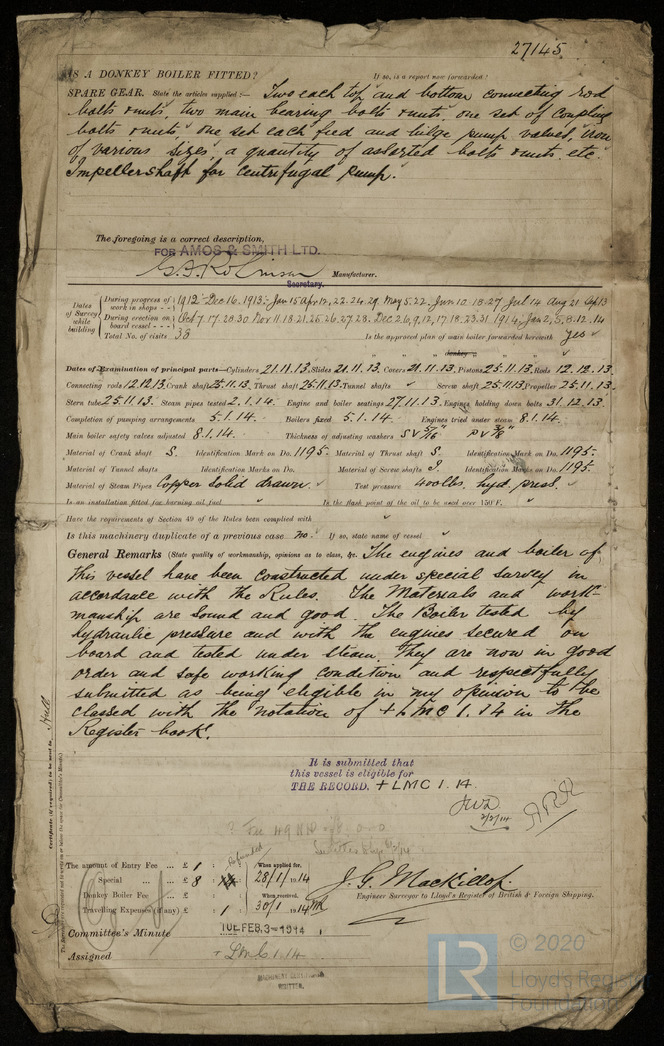 27145
IS A DONKEY BOILER FITTED? If so, is a report now forwarded?
SPARE GEAR. State the articles supplied:— Two each top and bottom connecting rod
bolts & nuts, two main bearing bolts & nuts, one set of coupling
bolts & nuts, one set each feed and bilge pump valves, iron
of various sizes, a quantity of assorted bolts & nuts etc.
Impeller shaft for centrifugal pump.
The foregoing is a correct description,
FOR AMOS & SMITH LTD.
Robinson Manufacturer.
Secretary.
Dates of Survey while building
During progress of work in shops - - 1912: Dec 16. 1913: Jan 15 Apr 12, 22. 24. 29. May 5. 22. Jun 10. 18. 27 Jul 14 Aug 21 Sep 13
During erection on board vessel - - - Oct 7. 17. 28. 30 Nov 11. 18. 21. 25. 26. 27. 28. Dec 2. 6. 9. 12, 17. 18. 23. 31. 1914: Jan 2, 5. 8. 12. 14
Total No. of visits 38 Is the approved plan of main boiler forwarded herewith Yes
" " " donkey " " "
Dates of Examination of principal parts—Cylinders 21.11.13. Slides 21.11.13. Covers 21.11.13. Pistons 25.11.13. Rods 12.12.13.
Connecting rods 12.12.13. Crank shaft 25.11.13. Thrust shaft 25.11.13. Tunnel shafts ✓ Screw shaft 25.11.13. Propeller 25.11.13.
Stern tube 25.11.13. Steam pipes tested 2.1.14. Engine and boiler seatings 27.11.13. Engines holding down bolts 31.12.13.
Completion of pumping arrangements 5.1.14. Boilers fixed 5.1.14. Engines tried under steam 8.1.14.
Main boiler safety valves adjusted 8.1.14. Thickness of adjusting washers S V 5/16" P V 3/8"
Material of Crank shaft S. Identification Mark on Do. 1195. Material of Thrust shaft S. Identification Mark on Do. 1195.
Material of Tunnel shafts Identification Marks on Do. Material of Screw shafts I. Identification Marks on Do. 1195.
Material of Steam Pipes Copper solid drawn. ✓ Test pressure 400 lbs. hyd. press. ✓
Is an installation fitted for burning oil fuel ✓ Is the flash point of the oil to be used over 150°F. ✓
Have the requirements of Section 49 of the Rules been complied with ✓
Is this machinery duplicate of a previous case no. If so, state name of vessel ✓
General Remarks (State quality of workmanship, opinions as to class, &c. The engines and boiler of
this vessel have been constructed under special survey in
accordance with the Rules. The Materials and work-
manship are sound and good. The Boiler tested by
hydraulic pressure and with the engines secured on
board and tested under steam. They are now in good
order and safe working condition and respectfully
submitted as being eligible in my opinion to be
classed with the notation of + LMC 1.14 in the
Register book.
It is submitted that
this vessel is eligible for
THE RECORD. + LMC 1.14.
2/2/14
Certificate (if required) to be sent to Hull
The amount of Entry Fee ... £ 1 : When applied for,
Special ... ... £ 8 : 28/1/1914
Donkey Boiler Fee ... £ : When received,
Travelling Expenses (if any) £ 1 : 30/1 1914
J. G. Mackillop
Engineer Surveyor to Lloyd's Register of British & Foreign Shipping.
Committee's Minute TUE. FEB. 3 - 1914
Assigned + LMC 1.14
MACHINERY CERTIFICATE
WRITTEN.
LR
© 2020
Lloyd's Register
Foundation